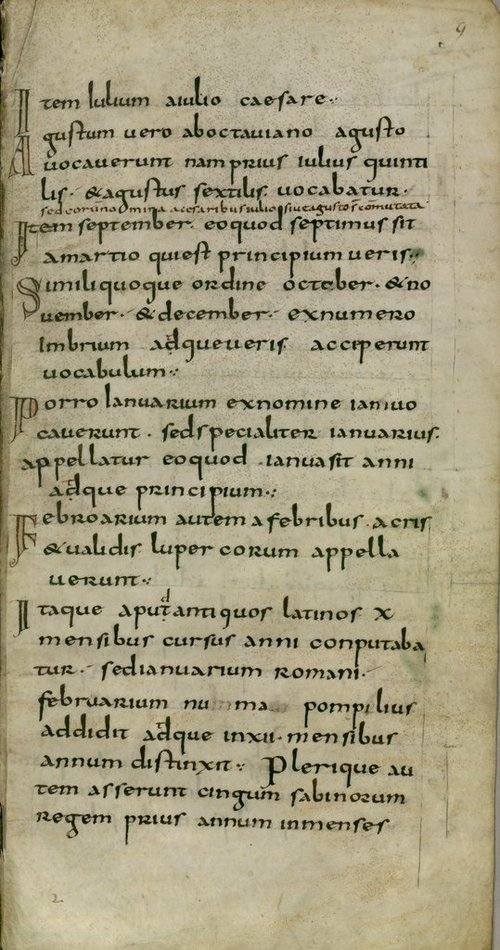 9
Item Iulium aiulio caesare
Agustum uero aboctauiano agusto
uocauerunt nam prius iulius quinti
lis. & agustus sextilis uocabatur.
sed cominomina acesaribus iulio siue agusto comutata
Item september. eoquod septimus sit
amartio qui est principium ueris
Similiquoque ordine october. & no
uember. & december. exnumero
Imbrium adqueueris accperunt
uocabulum
Porro Ianuarium exnomine iani uo
cauerunt. sed specialiter ianuarius.
appellatur eoquod ianua sit anni
adque principium
Febroarium autem a febribus acris
& ualidis luper corum appella
uerunt
Itaque aput antiquos latinos x
mensibus cursus anni conputaba
tur. sed ianuarium romani.
februarium nu ma pompilius
addidit adque inxii. mensibus
annum distinxit Plerique au
tem asserunt cingum sabinorum
regem prius annum inmenses
2